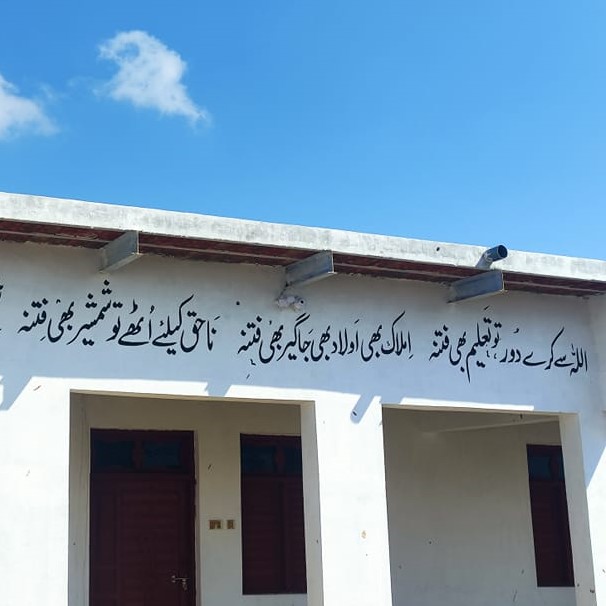 اللہ سے کرے دُور تو تَعلیم بھی فتنہ اِملاک بھی اَولاد بھی جَاگیر بھی فتنہ نَاحق کیلئے اُٹھے تو شمشیر بھی فِتنہ